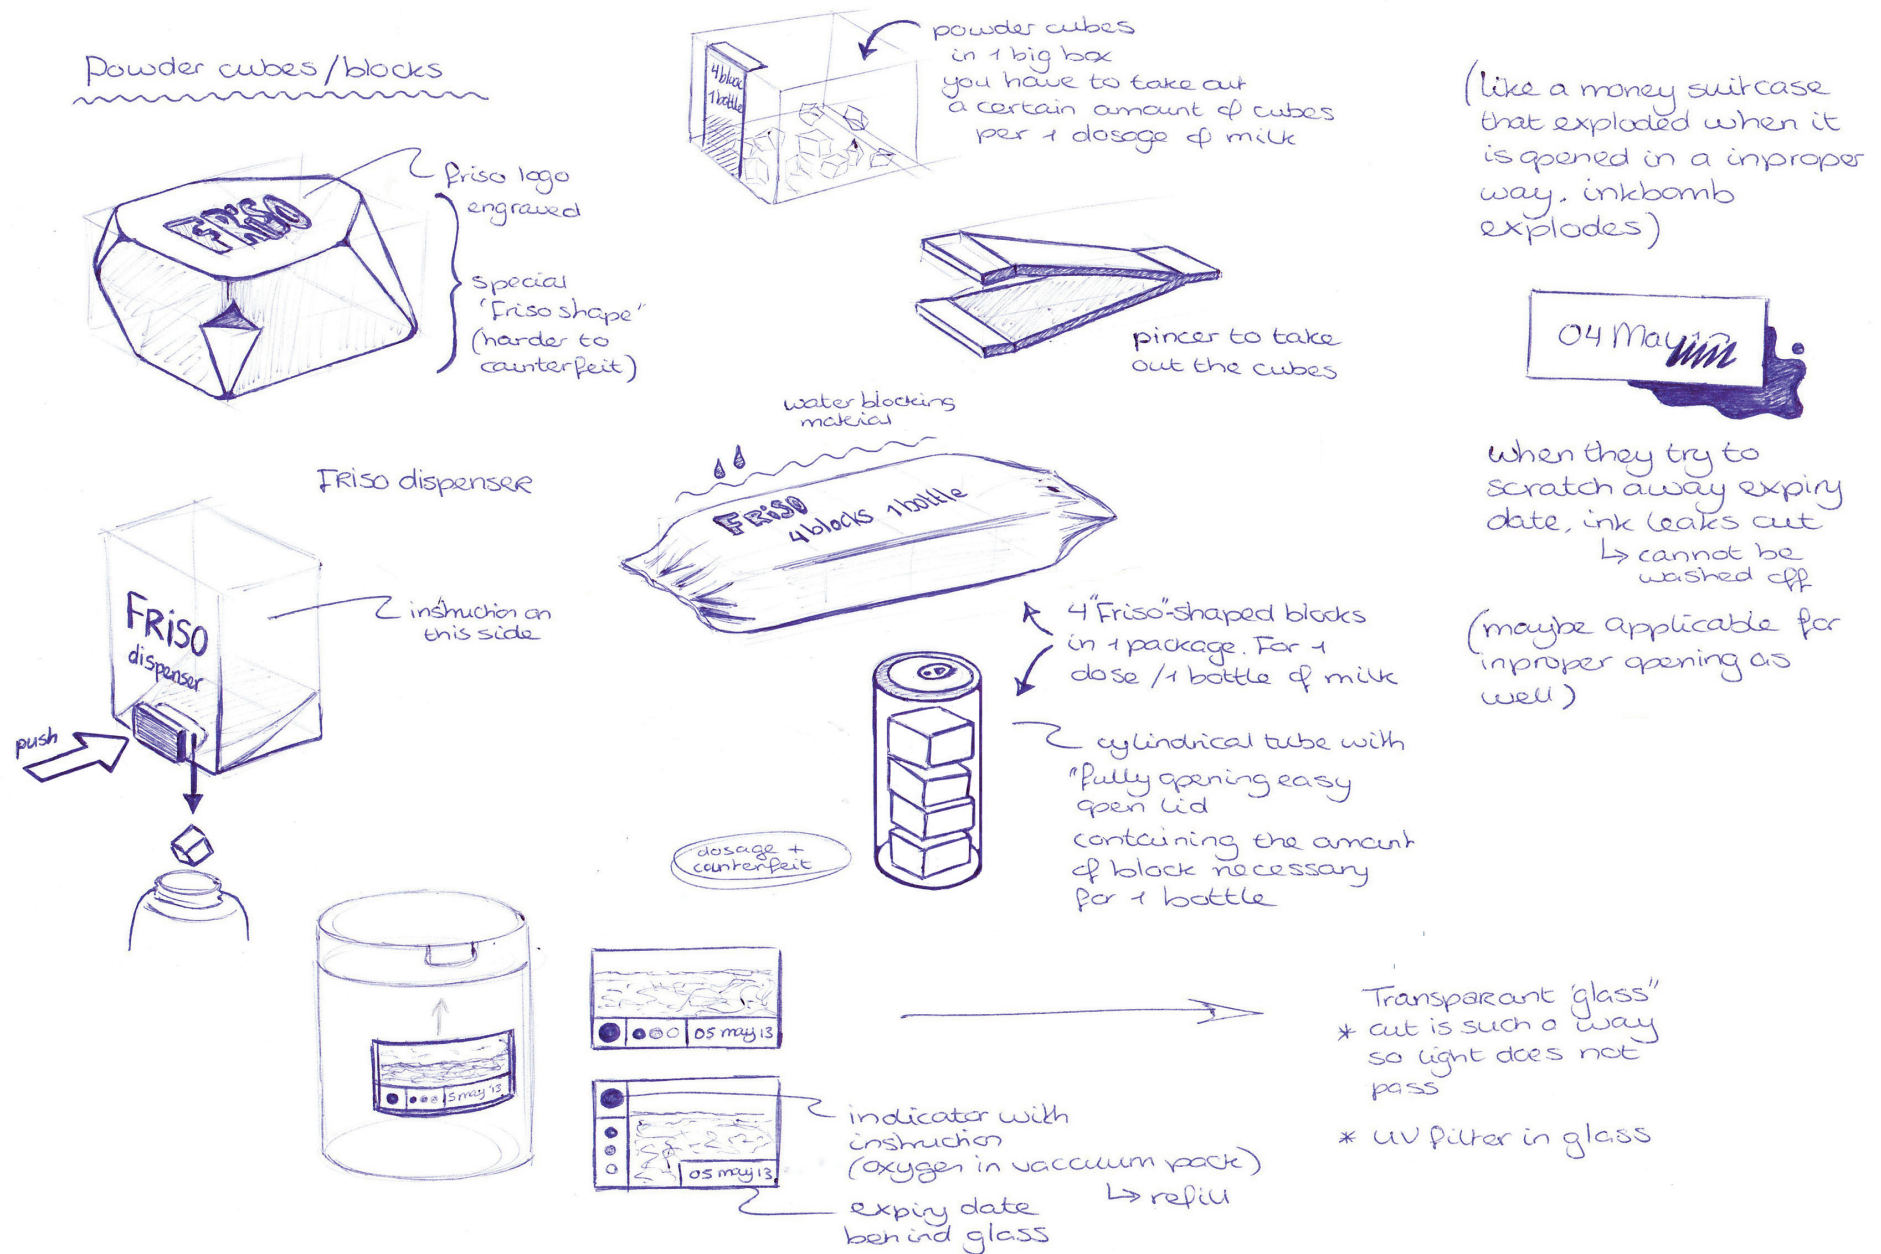 Powder cubes/blocks
FRISO
friso logo
engraved
special
"Friso shape"
(harder to
counterfeit)
4 block
1 bottle
powder cubes
in 1 big box
you have to take out
a certain amount of cubes
per 1 dosage of milk
pincer to take
out the cubes
(like a money suitcase
that exploded when it
is opened in a inproper
way. inkbomb
explodes)
04 May
when they try to
scratch away expiry
date, ink leaks out
↳ cannot be
washed off
(maybe applicable for
inproper opening as
well)
water blocking
material
FRISO
4 blocks 1 bottle
4 "Friso"-shaped blocks
in 1 package. For 1
dose /1 bottle of milk
cylindrical tube with
"fully opening easy
open lid
containing the amount
of block necessary
for 1 bottle
dosage +
counterfeit
FRISO dispenser
FRISO
dispenser
instruction on
this side
push
5 may '13
05 may 13
05 may 13
indicator with
instruction
(oxygen in vaccuum pack)
↳ refill
expiry date
behind glass
Transparant "glass"
* cut is such a way
so light does not
pass
* UV filter in glass